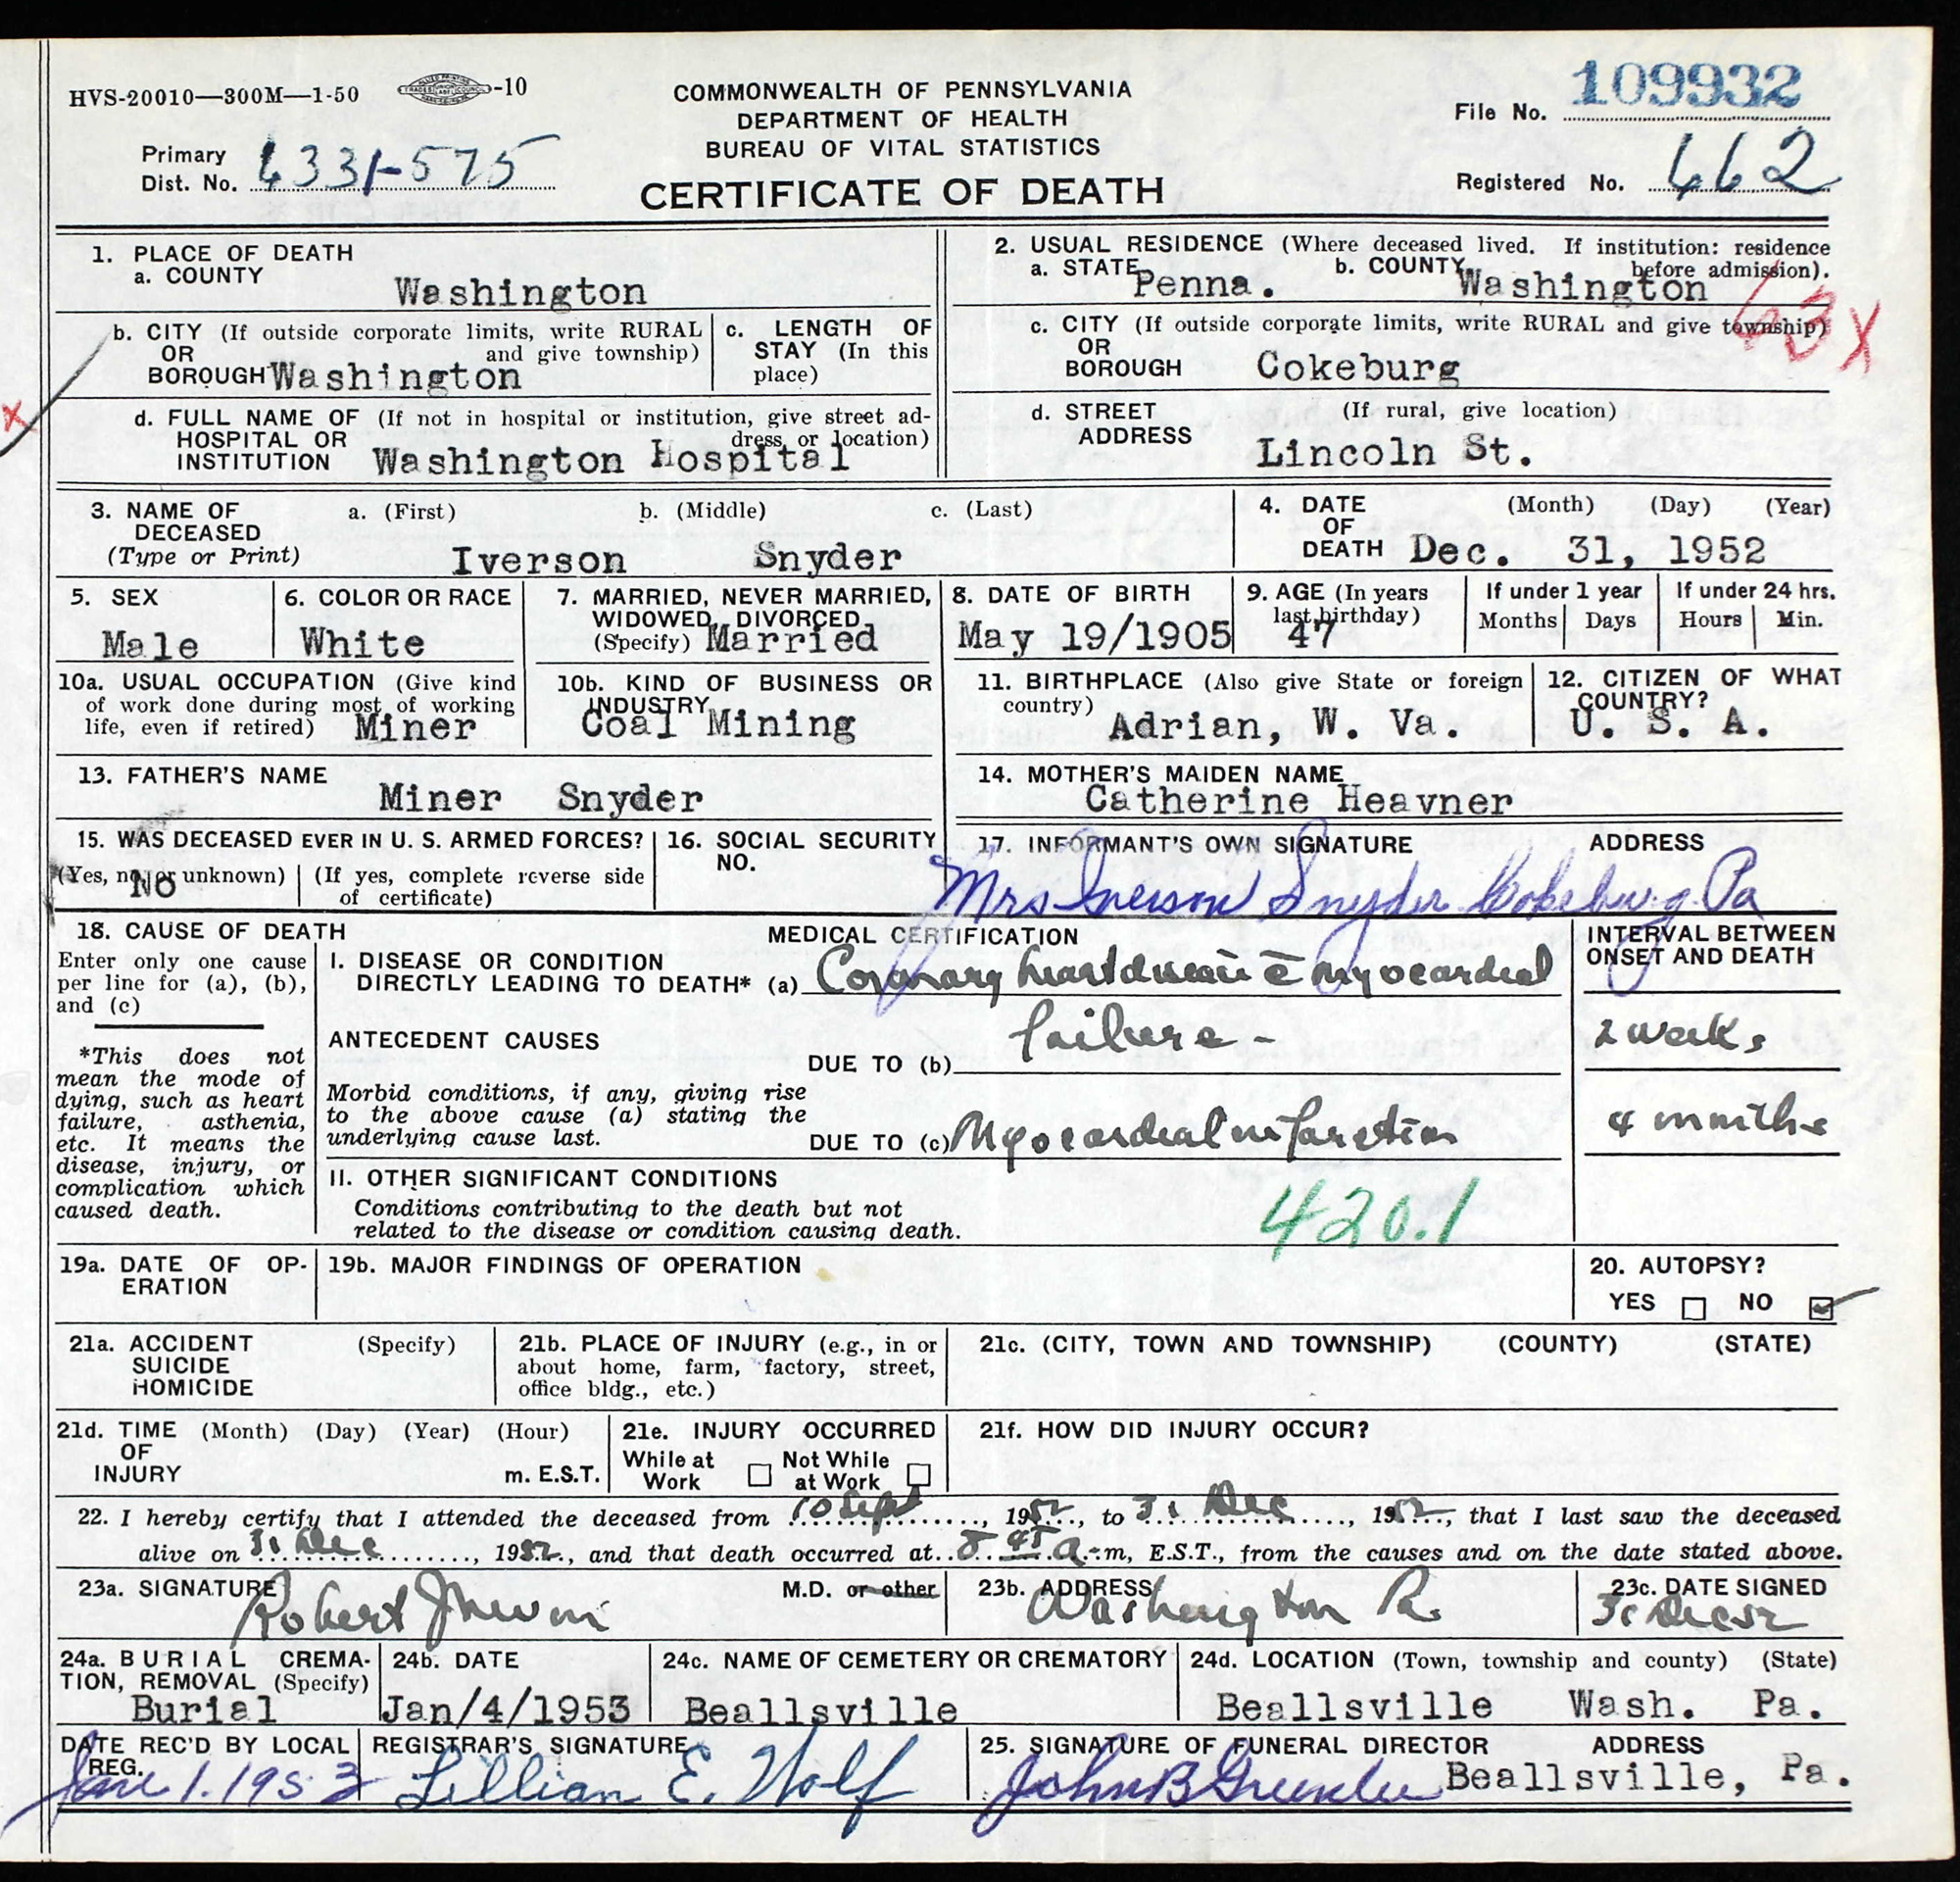 HVS-20010—300M—1-50 -10
COMMONWEALTH OF PENNSYLVANIA
DEPARTMENT OF HEALTH
BUREAU OF VITAL STATISTICS
CERTIFICATE OF DEATH
File No. 109932
Primary
Dist. No. 6331-575
Registered No. 662
1. PLACE OF DEATH
a. COUNTY
Washington
b. CITY (If outside corporate limits, write RURAL
OR and give township)
BOROUGH Washington
c. LENGTH OF
STAY (In this
place)
d. FULL NAME OF (If not in hospital or institution, give street ad-
HOSPITAL OR dress or location)
INSTITUTION Washington Hospital
2. USUAL RESIDENCE (Where deceased lived. If institution: residence
before admission).
a. STATE Penna. b. COUNTY Washington
63X
c. CITY (If outside corporate limits, write RURAL and give township)
OR
BOROUGH Cokeburg
d. STREET (If rural, give location)
ADDRESS
Lincoln St.
X
3. NAME OF a. (First) b. (Middle) c. (Last)
DECEASED
(Type or Print) Iverson Snyder
4. DATE (Month) (Day) (Year)
OF
DEATH Dec. 31, 1952
5. SEX
Male
6. COLOR OR RACE
White
7. MARRIED, NEVER MARRIED,
WIDOWED, DIVORCED
(Specify) Married
8. DATE OF BIRTH
May 19/1905
9. AGE (In years
last birthday)
47
If under 1 year
Months Days
If under 24 hrs.
Hours Min.
10a. USUAL OCCUPATION (Give kind
of work done during most of working
life, even if retired) Miner
10b. KIND OF BUSINESS OR
INDUSTRY
Coal Mining
11. BIRTHPLACE (Also give State or foreign
country)
Adrian, W. Va.
12. CITIZEN OF WHAT
COUNTRY?
U. S. A.
13. FATHER'S NAME
Miner Snyder
14. MOTHER'S MAIDEN NAME
Catherine Heavner
15. WAS DECEASED EVER IN U. S. ARMED FORCES?
(Yes, no, or unknown) (If yes, complete reverse side
of certificate)
No
16. SOCIAL SECURITY
NO.
17. INFORMANT'S OWN SIGNATURE ADDRESS
Mrs Iverson Snyder Cokeburg Pa
18. CAUSE OF DEATH
Enter only one cause
per line for (a), (b),
and (c)
*This does not
mean the mode of
dying, such as heart
failure, asthenia,
etc. It means the
disease, injury, or
complication which
caused death.
MEDICAL CERTIFICATION
I. DISEASE OR CONDITION
DIRECTLY LEADING TO DEATH* (a) Coronary heart disease c̄ myocardial
ANTECEDENT CAUSES
failure -
DUE TO (b)
Morbid conditions, if any, giving rise
to the above cause (a) stating the
underlying cause last.
DUE TO (c) Myocardial infarction
INTERVAL BETWEEN
ONSET AND DEATH
2 weeks
4 months
II. OTHER SIGNIFICANT CONDITIONS
Conditions contributing to the death but not
related to the disease or condition causing death.
420.1
19a. DATE OF OP-
ERATION
19b. MAJOR FINDINGS OF OPERATION
20. AUTOPSY?
YES NO
21a. ACCIDENT (Specify)
SUICIDE
HOMICIDE
21b. PLACE OF INJURY (e.g., in or
about home, farm, factory, street,
office bldg., etc.)
21c. (CITY, TOWN AND TOWNSHIP) (COUNTY) (STATE)
21d. TIME (Month) (Day) (Year) (Hour)
OF
INJURY m. E.S.T.
21e. INJURY OCCURRED
While at Not While
Work at Work
21f. HOW DID INJURY OCCUR?
22. I hereby certify that I attended the deceased from 10 Sept, 1952, to 31 Dec, 1952, that I last saw the deceased
alive on 31 Dec, 1952, and that death occurred at 8 45 a.m, E.S.T., from the causes and on the date stated above.
23a. SIGNATURE M.D. or other
Robert
23b. ADDRESS
Washington Pa.
23c. DATE SIGNED
31 Dec 52
24a. BURIAL CREMA-
TION, REMOVAL (Specify)
Burial
24b. DATE
Jan/4/1953
24c. NAME OF CEMETERY OR CREMATORY
Beallsville
24d. LOCATION (Town, township and county) (State)
Beallsville Wash. Pa.
DATE REC'D BY LOCAL
REG.
Jan 1. 1953
REGISTRAR'S SIGNATURE
Lillian E. Wolf
25. SIGNATURE OF FUNERAL DIRECTOR ADDRESS
John B Greenlee Beallsville, Pa.